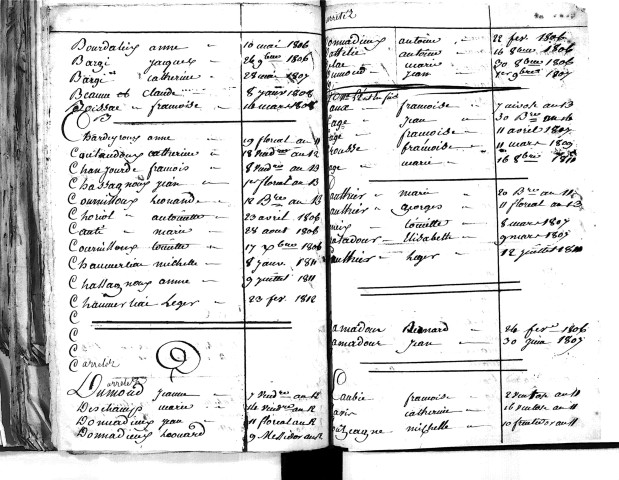 Bourdaleix anne 10 mai 1806
Bargi Jacques 26 9bre 1806
Bargi catherine 28 mai 1807
Beaune claude 8 janv 1808
Boissac francoise 16 mars 1808
Chardeyroux anne 19 floreal an 11
catherine 18 vendre an 12
Chanjourde francois 8 vendre an 13
Chassagnoux jean 1er floreal an 13
Cournilloux Leonarde 12 Bre an 13
Choriol antoinette 23 avril 1806
Couti marie 28 aout 1806
Cournilloux toinette 17 xbre 1806
Chaumerliac michelle 8 janv. 1811
Chassagnoux anne 9 juillet 1811
Chaumerliac Leger 23 fev. 1812
C
C
C
C arreté
arreté
Dumond jeanne 7 vendre an 12
Deschamps marie 14 vendre an 12
Donnadieux jean 11 floreal an 12
Donnadieux Leonard 9 Messidor an 12
arreté
onnadieux antoine 22 fev. 1806
antoine 16 8bre 1806
marie 30 8bre 1806
umond jean 1er 9bre 1807
francoise an 13
age jean 30 Bre an 14
age francoise 11 avril 1807
rousse francoise 11 mars 1809
age marie 16 8bre 1811
authier marie 20 Bre an 11
authier georges 11 floreal an 13
toinette 8 mars 1807
Elisabeth 9 mars 1807
authier Leger 12 juillet 1811
amadour Bernard 24 fev. 1806
amadour jean 30 juin 1807
Laubie francoise 2 ventose an 11
catherine 16 ventose an 11
michelle 10 fructidor an 11